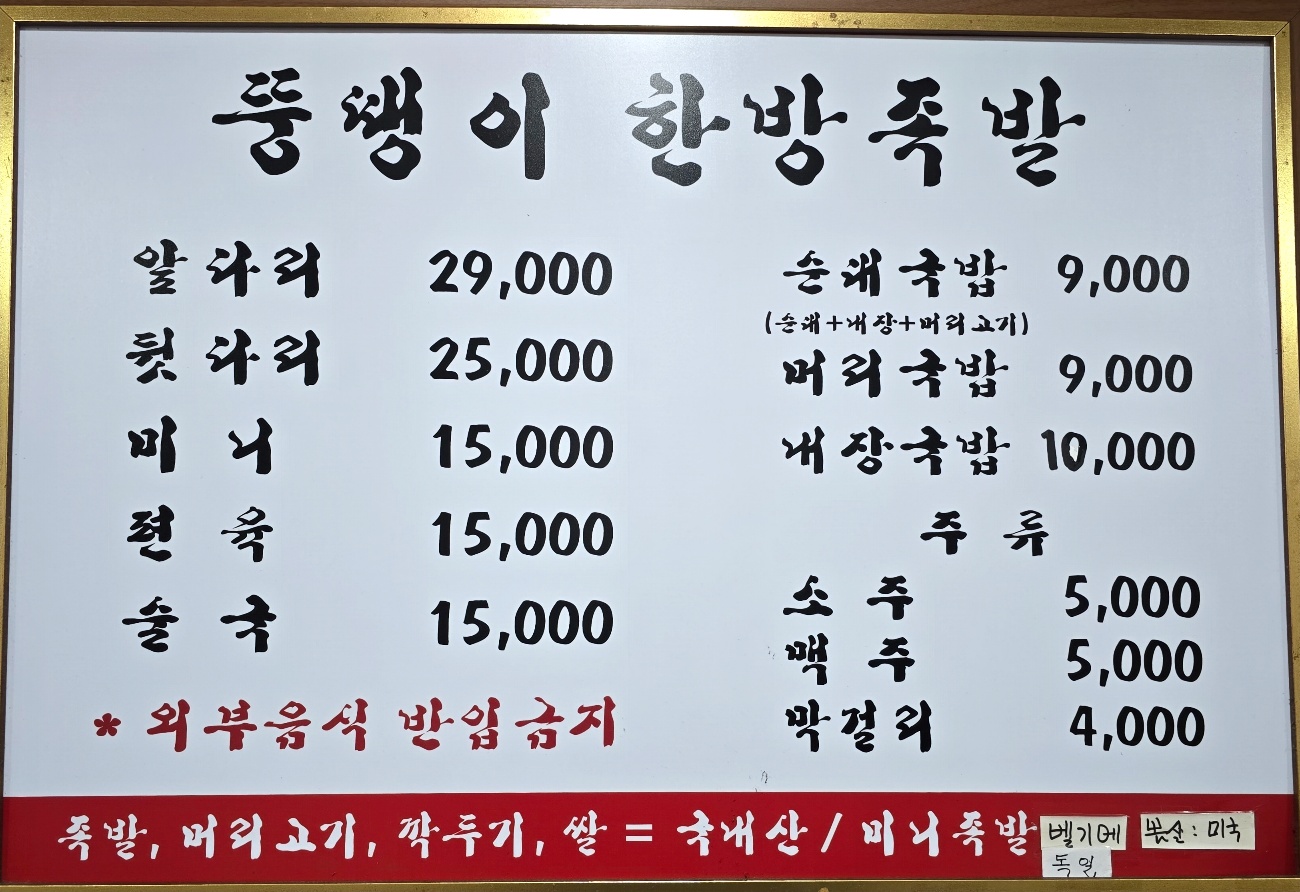 뚱땡이 한방족발
앞다리 29,000
뒷다리 25,000
미니 15,000
편육 15,000
술국 15,000
* 외부음식 반입금지
순대국밥 9,000
(순대+내장+머리고기)
머리국밥 9,000
내장국밥 10,000
주류
소주 5,000
맥주 5,000
막걸리 4,000
족발, 머리고기, 깍두기, 쌀 = 국내산 / 미니족발 벨기에 : 미국
독일